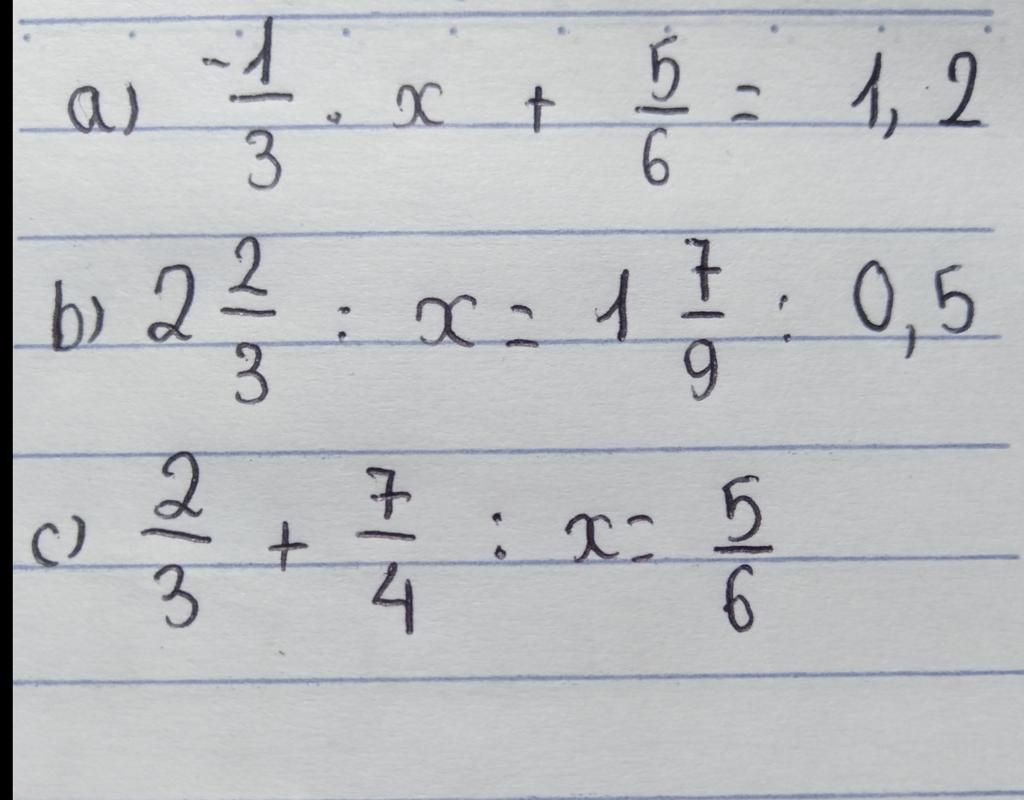 a) -1/3 . x + 5/6 = 1,2
b) 2 2/3 : x = 1 7/9 : 0,5
c) 2/3 + 7/4 : x = 5/6